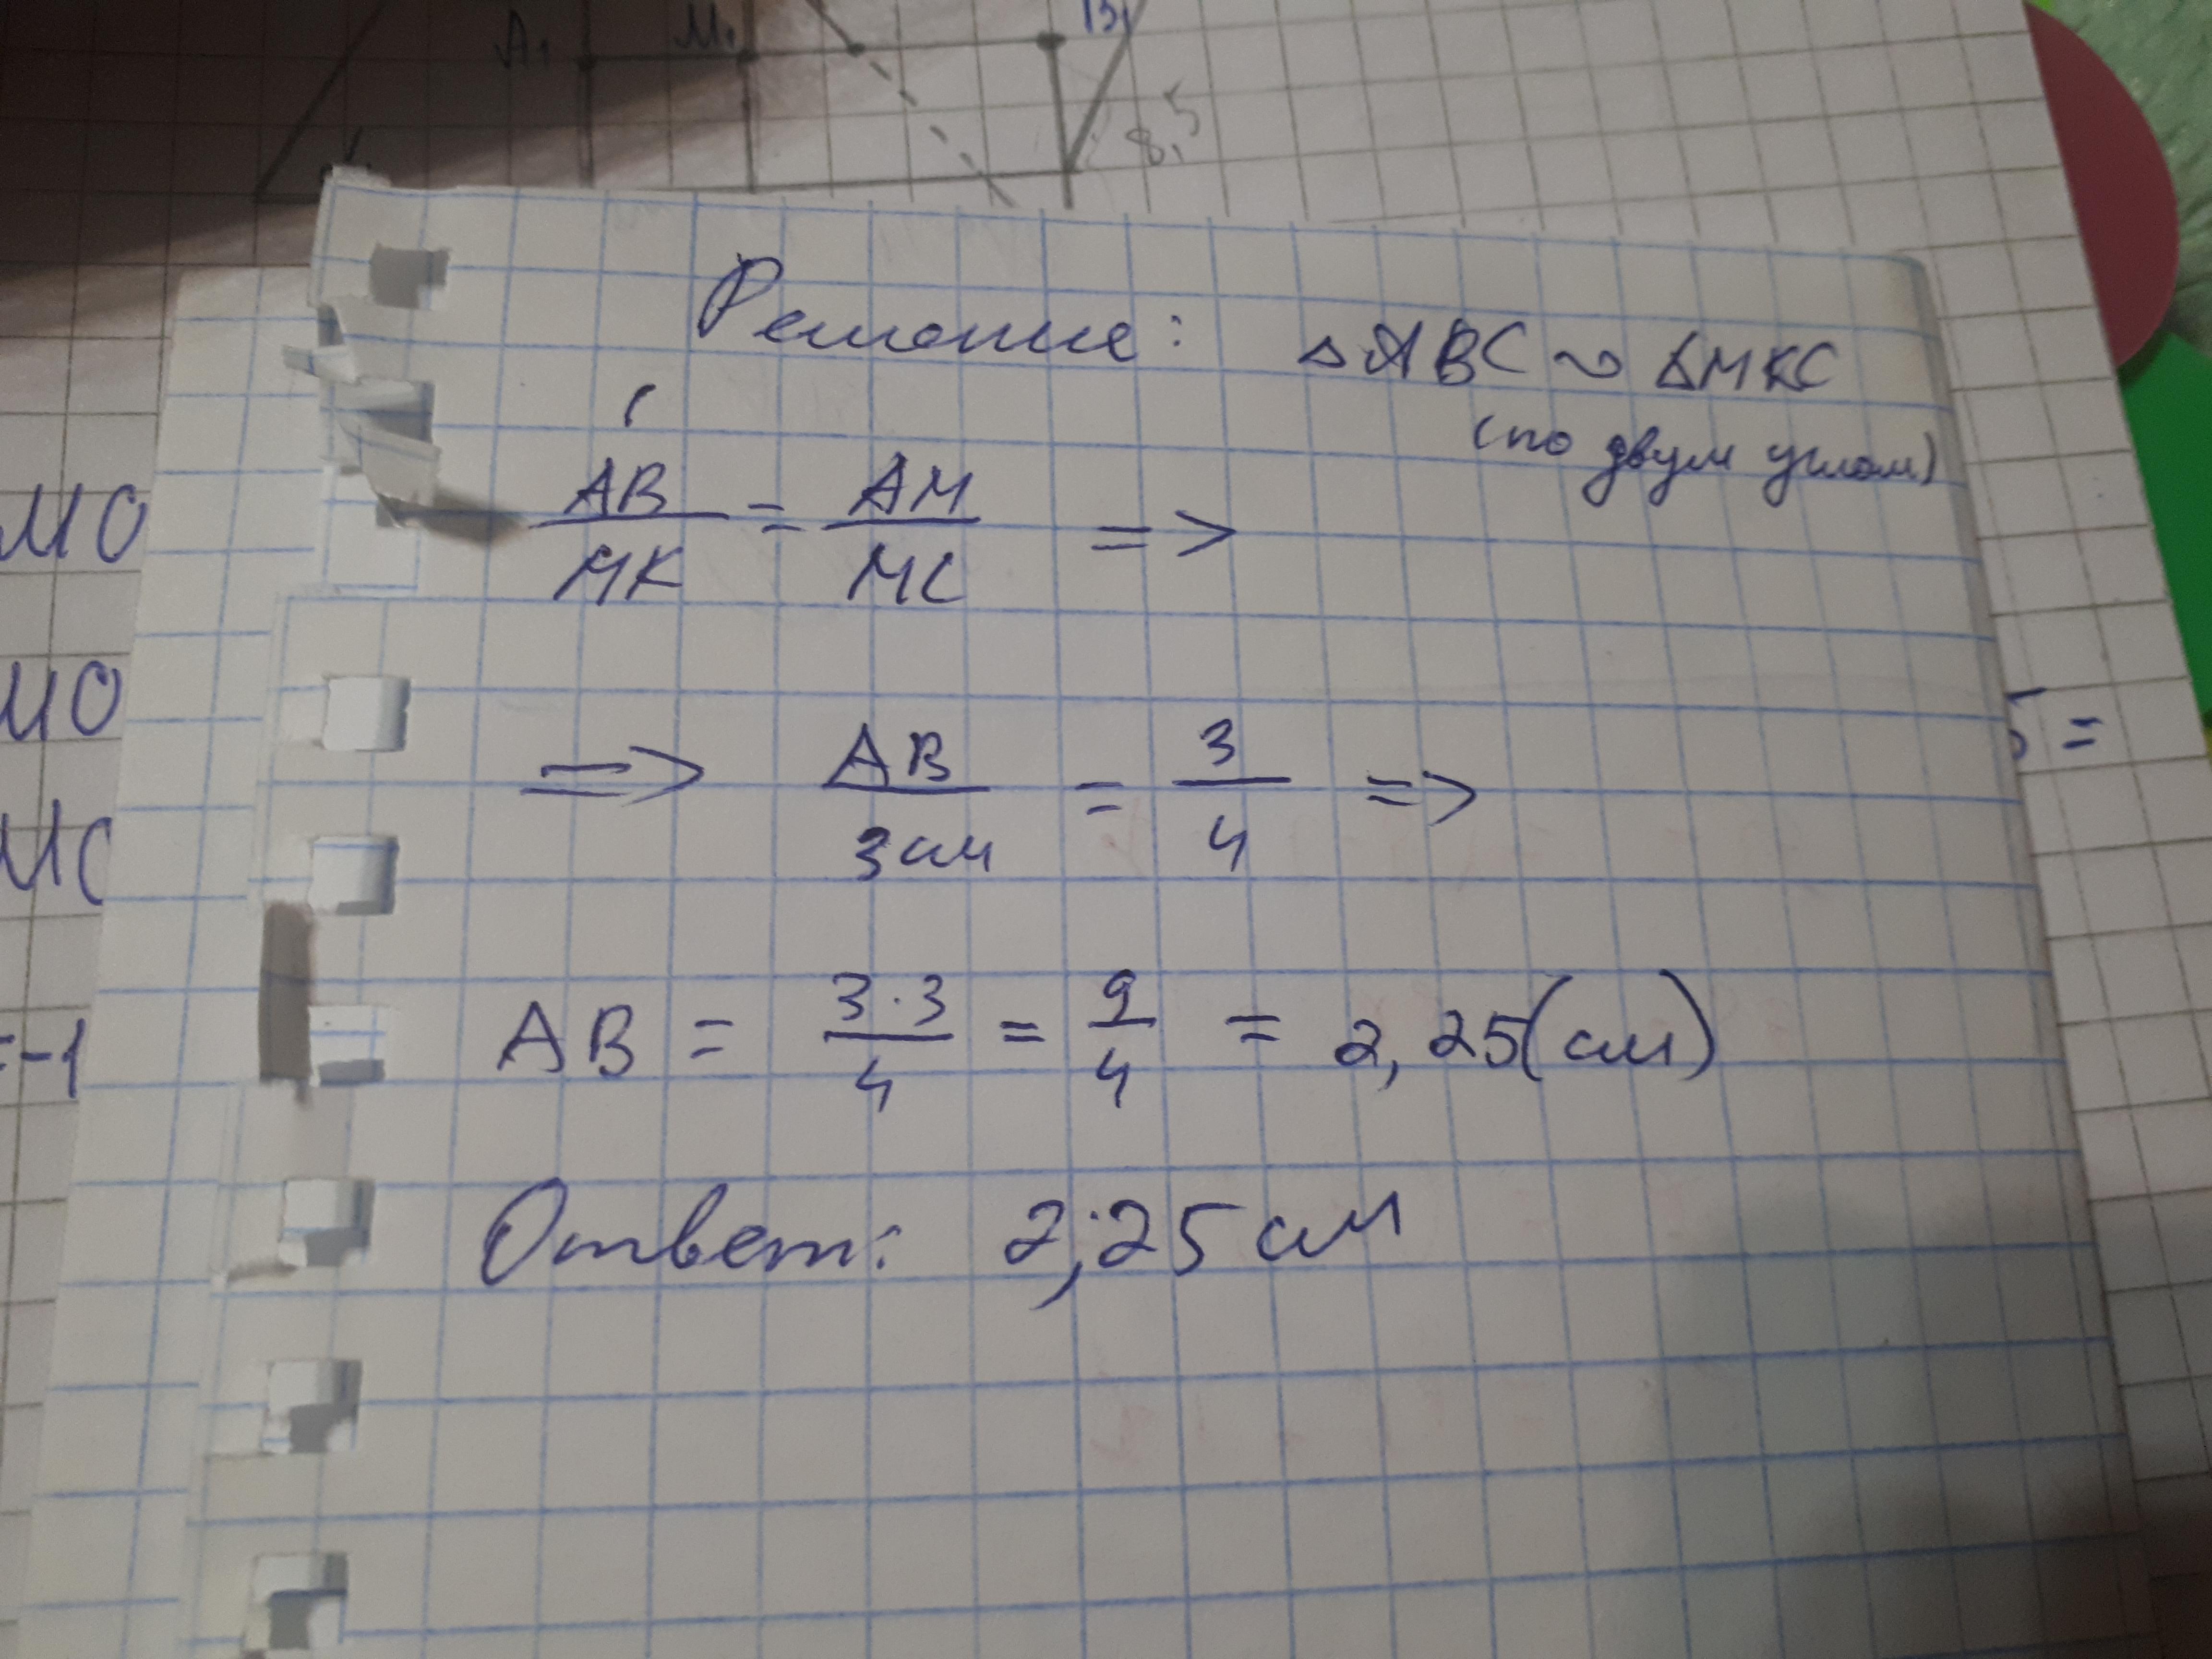 A₁ M₁ B₁
8,5
Решение: △ABC ∾ △MKC
(по двум углам)
AB/MK = AM/MC =>
=> AB/3см = 3/4 =>
AB = 3·3/4 = 9/4 = 2,25(см)
Ответ: 2,25 см
МО
МО
МС
=-1
5 =